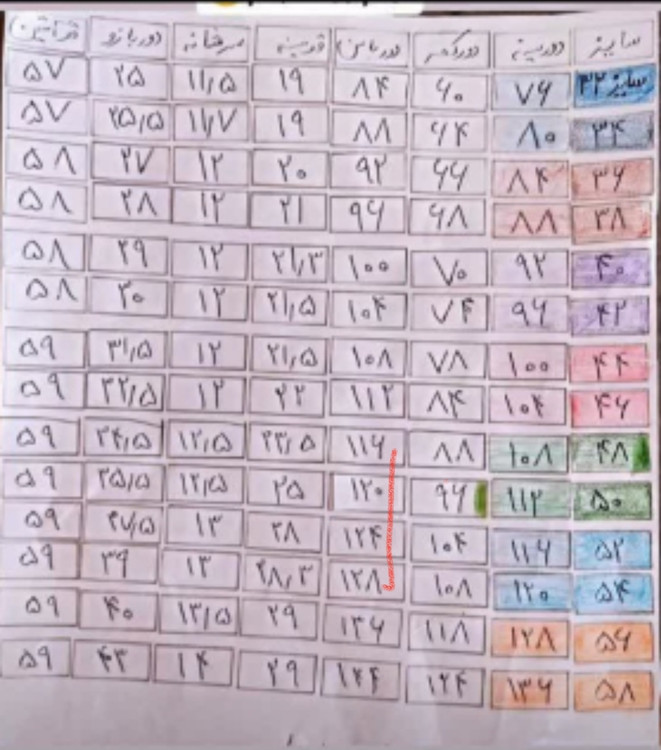 سایز دورسینه دورکمر دورباسن قدسینه سرشانه دوربازو قدآستین
سایز ۳۲ ۷۶ ۶۰ ۸۴ ۱۹ ۱۱,۵ ۲۵ ۵۷
۳۴ ۸۰ ۶۴ ۸۸ ۱۹ ۱۱,۷ ۲۵,۵ ۵۷
۳۶ ۸۴ ۶۶ ۹۲ ۲۰ ۱۲ ۲۷ ۵۸
۳۸ ۸۸ ۶۸ ۹۶ ۲۱ ۱۲ ۲۸ ۵۸
۴۰ ۹۲ ۷۰ ۱۰۰ ۲۱,۳ ۱۲ ۲۹ ۵۸
۴۲ ۹۶ ۷۴ ۱۰۴ ۲۱,۵ ۱۲ ۳۰ ۵۸
۴۴ ۱۰۰ ۷۸ ۱۰۸ ۲۱,۵ ۱۲ ۳۱,۵ ۵۹
۴۶ ۱۰۴ ۸۴ ۱۱۲ ۲۲ ۱۲ ۳۲,۵ ۵۹
۴۸ ۱۰۸ ۸۸ ۱۱۶ ۲۳,۵ ۱۲,۵ ۳۴,۵ ۵۹
۵۰ ۱۱۲ ۹۶ ۱۲۰ ۲۵ ۱۲,۵ ۳۵,۵ ۵۹
۵۲ ۱۱۶ ۱۰۴ ۱۲۴ ۲۸ ۱۳ ۳۷,۵ ۵۹
۵۴ ۱۲۰ ۱۰۸ ۱۲۸ ۲۸,۳ ۱۳ ۳۹ ۵۹
۵۶ ۱۲۸ ۱۱۸ ۱۳۶ ۲۹ ۱۳,۵ ۴۰ ۵۹
۵۸ ۱۳۶ ۱۲۴ ۱۴۴ ۲۹ ۱۴ ۴۳ ۵۹